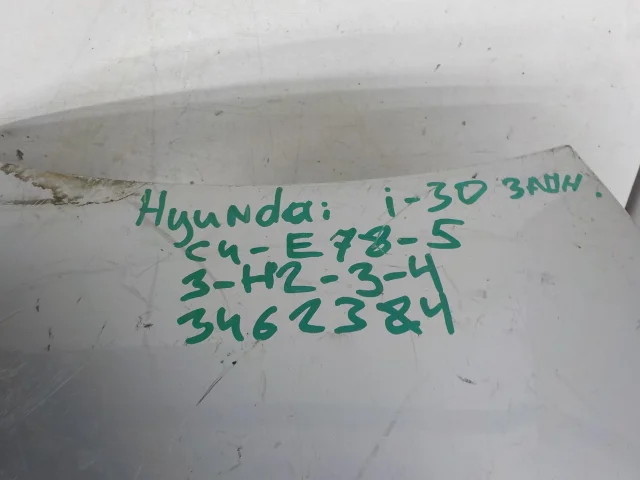 Hyundai i-30 ЗАДН.
C4-E78-5
3-H2-3-4
3462384